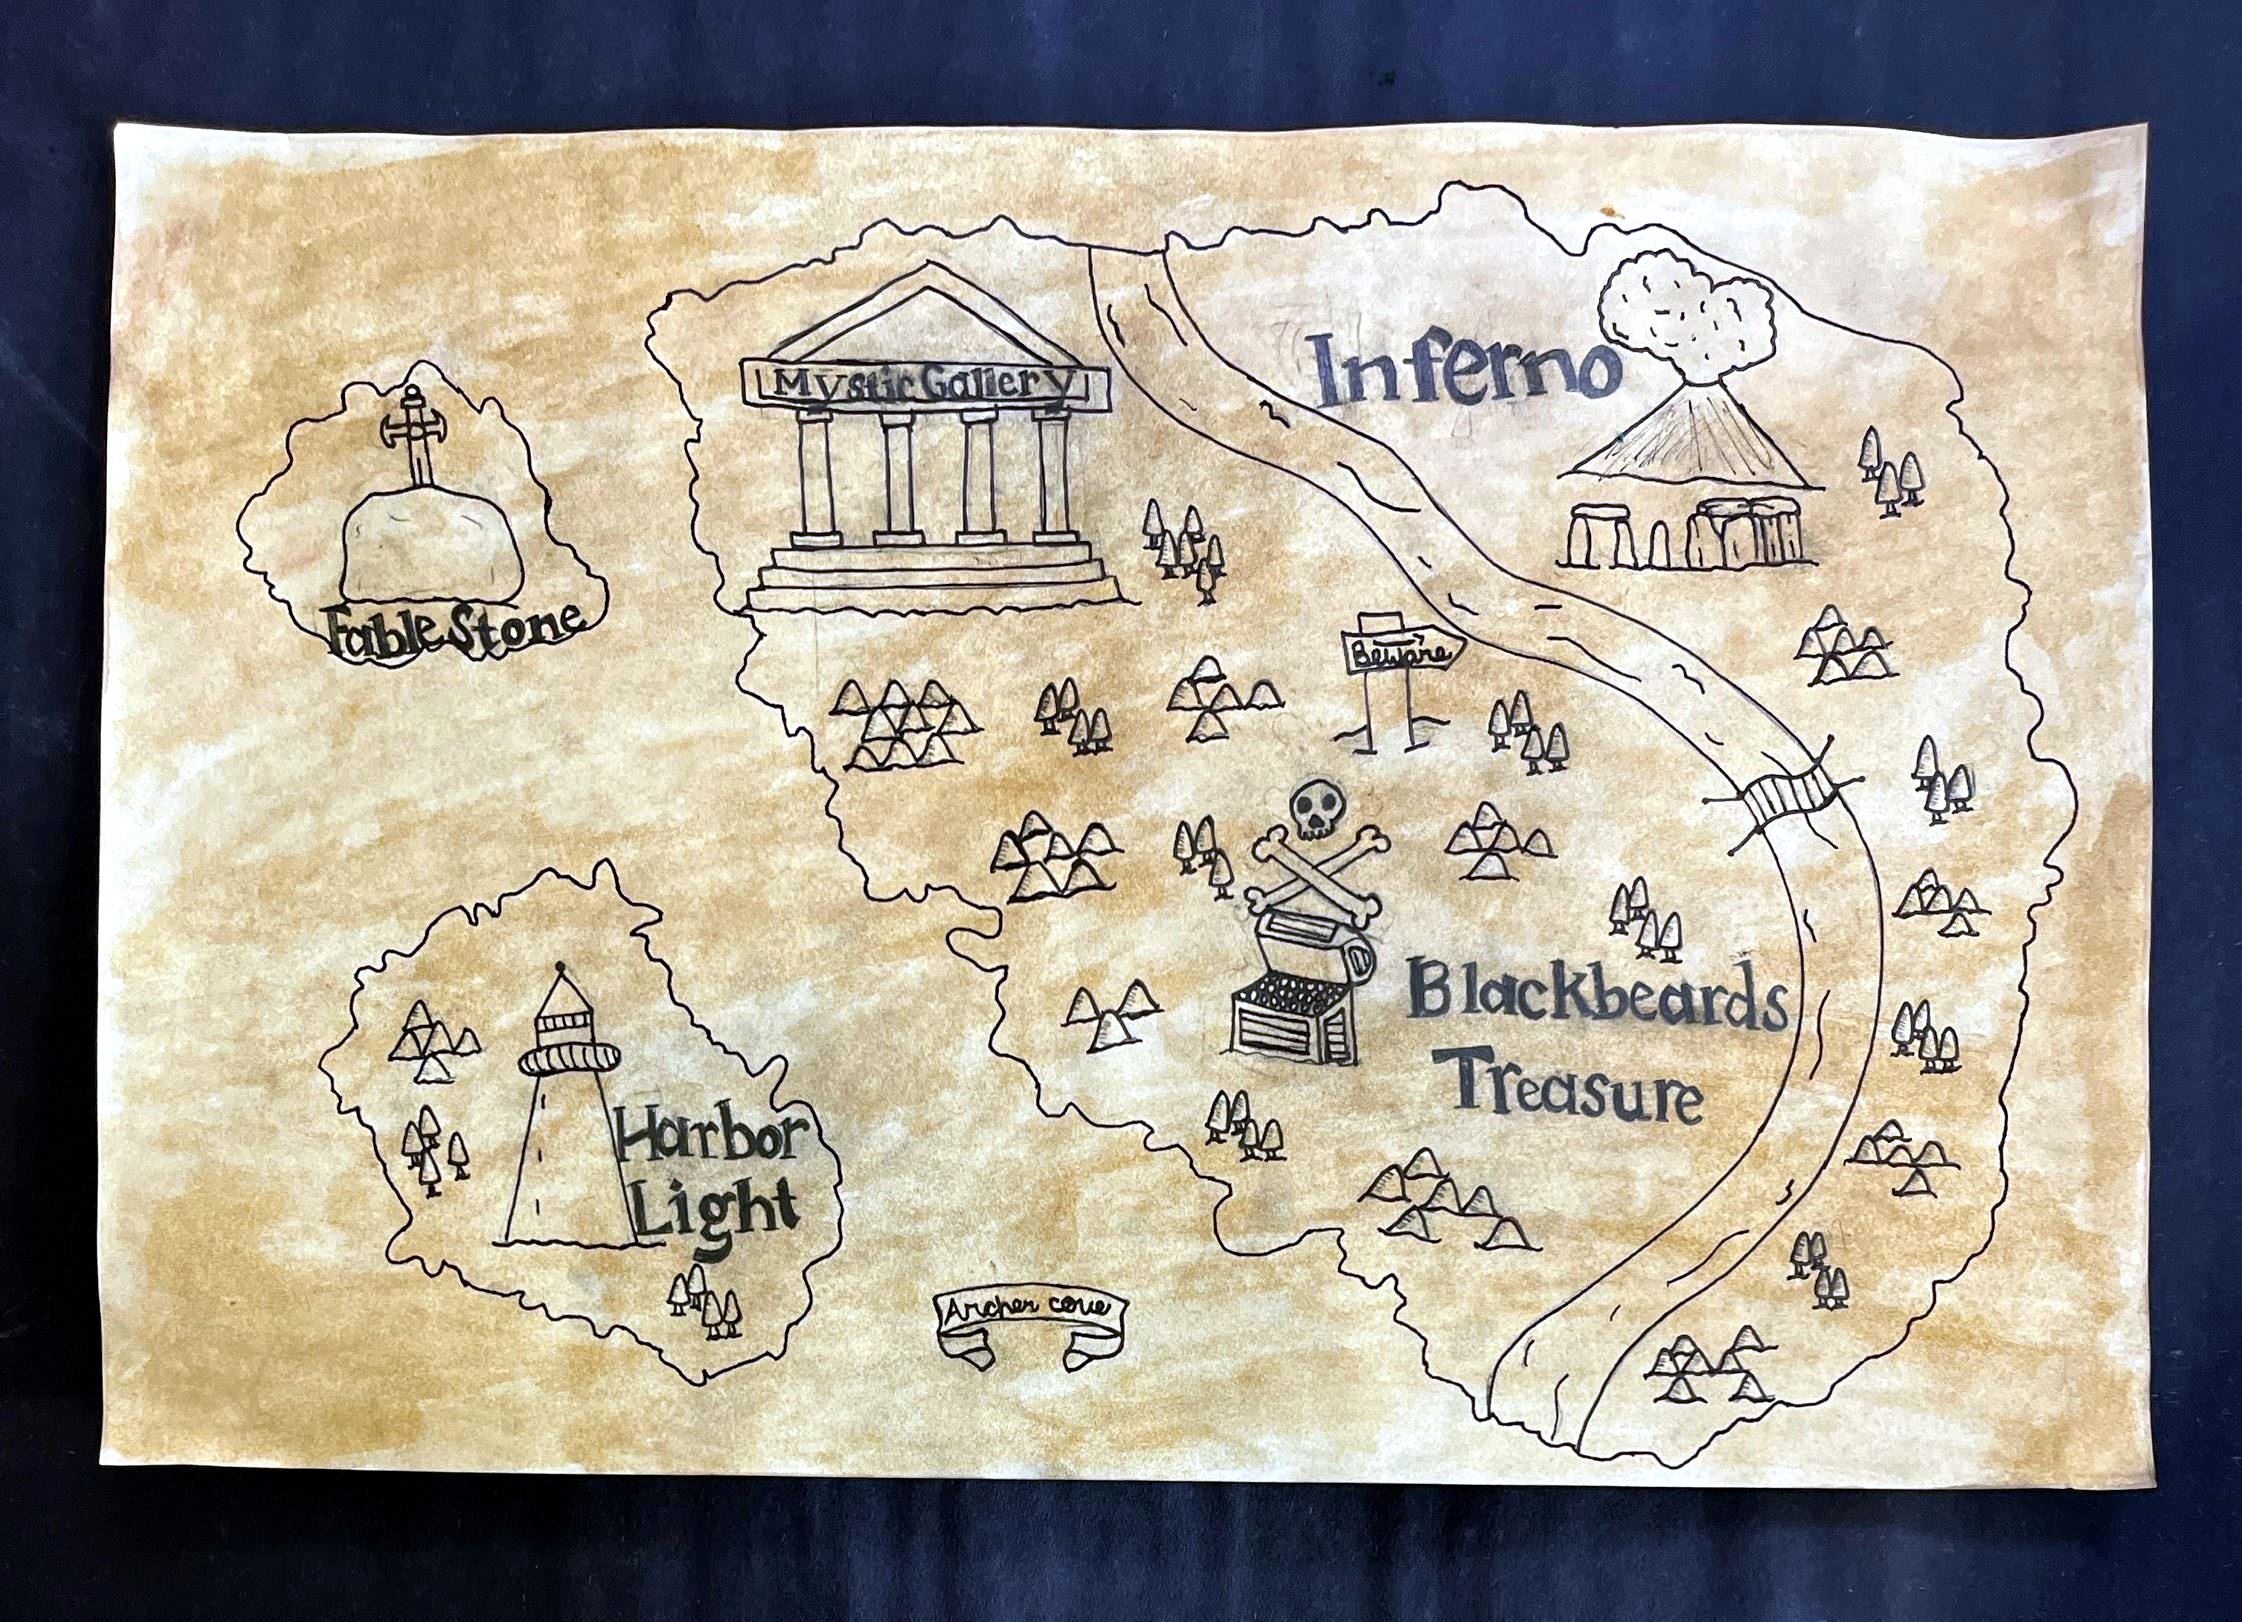 Mystic Gallery
Inferno
Fable Stone
Beware
Blackbeards
Treasure
Harbor
Light
Archer cove